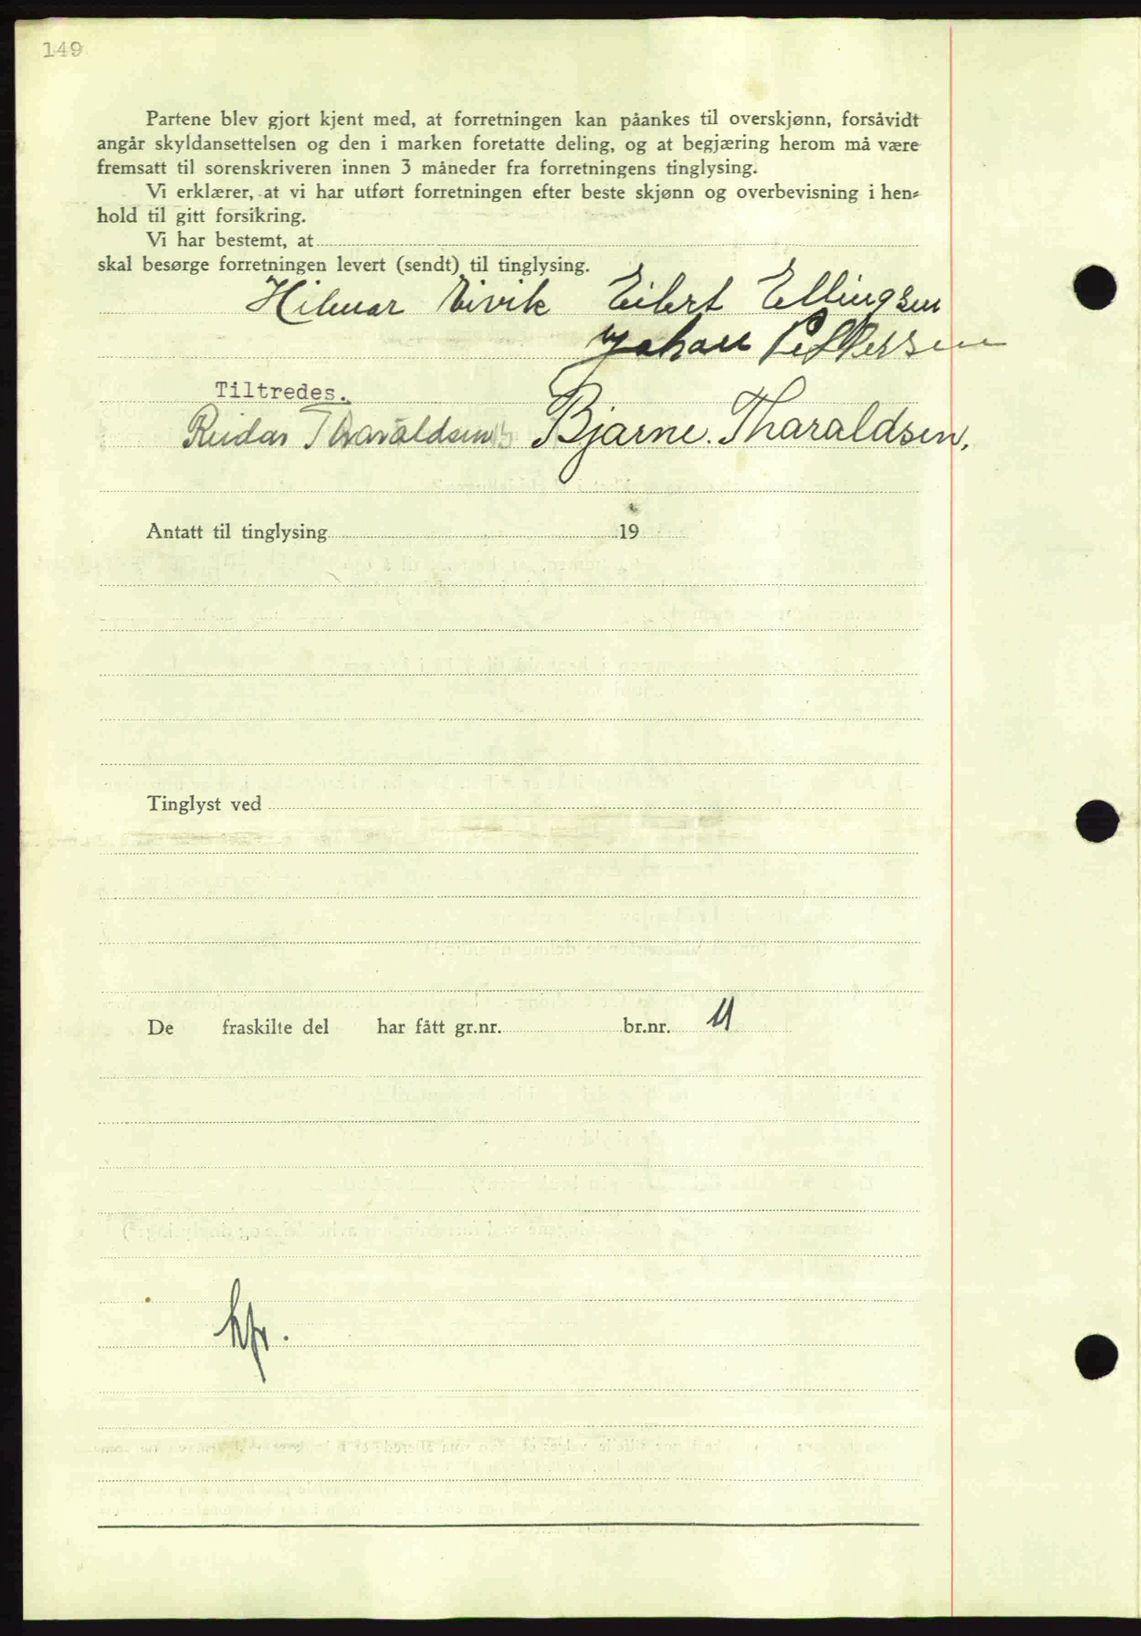 149
Partene blev gjort kjent med, at forretningen kan påankes til overskjønn, forsåvidt
angår skyldansettelsen og den i marken foretatte deling, og at begjæring herom må være
fremsatt til sorenskriveren innen 3 måneder fra forretningens tinglysing.
Vi erklærer, at vi har utført forretningen efter beste skjønn og overbevisning i hen-
hold til gitt forsikring.
Vi har bestemt, at
skal besørge forretningen levert (sendt) til tinglysing.
Hilmar Eivik Eilert Ellingsen
Johan Pettersen
Tiltredes.
Reidar Tharaldsen Bjarne. Tharaldsen,
Antatt til tinglysing 19
Tinglyst ved
De fraskilte del har fått gr.nr. br.nr. 11
hfr.